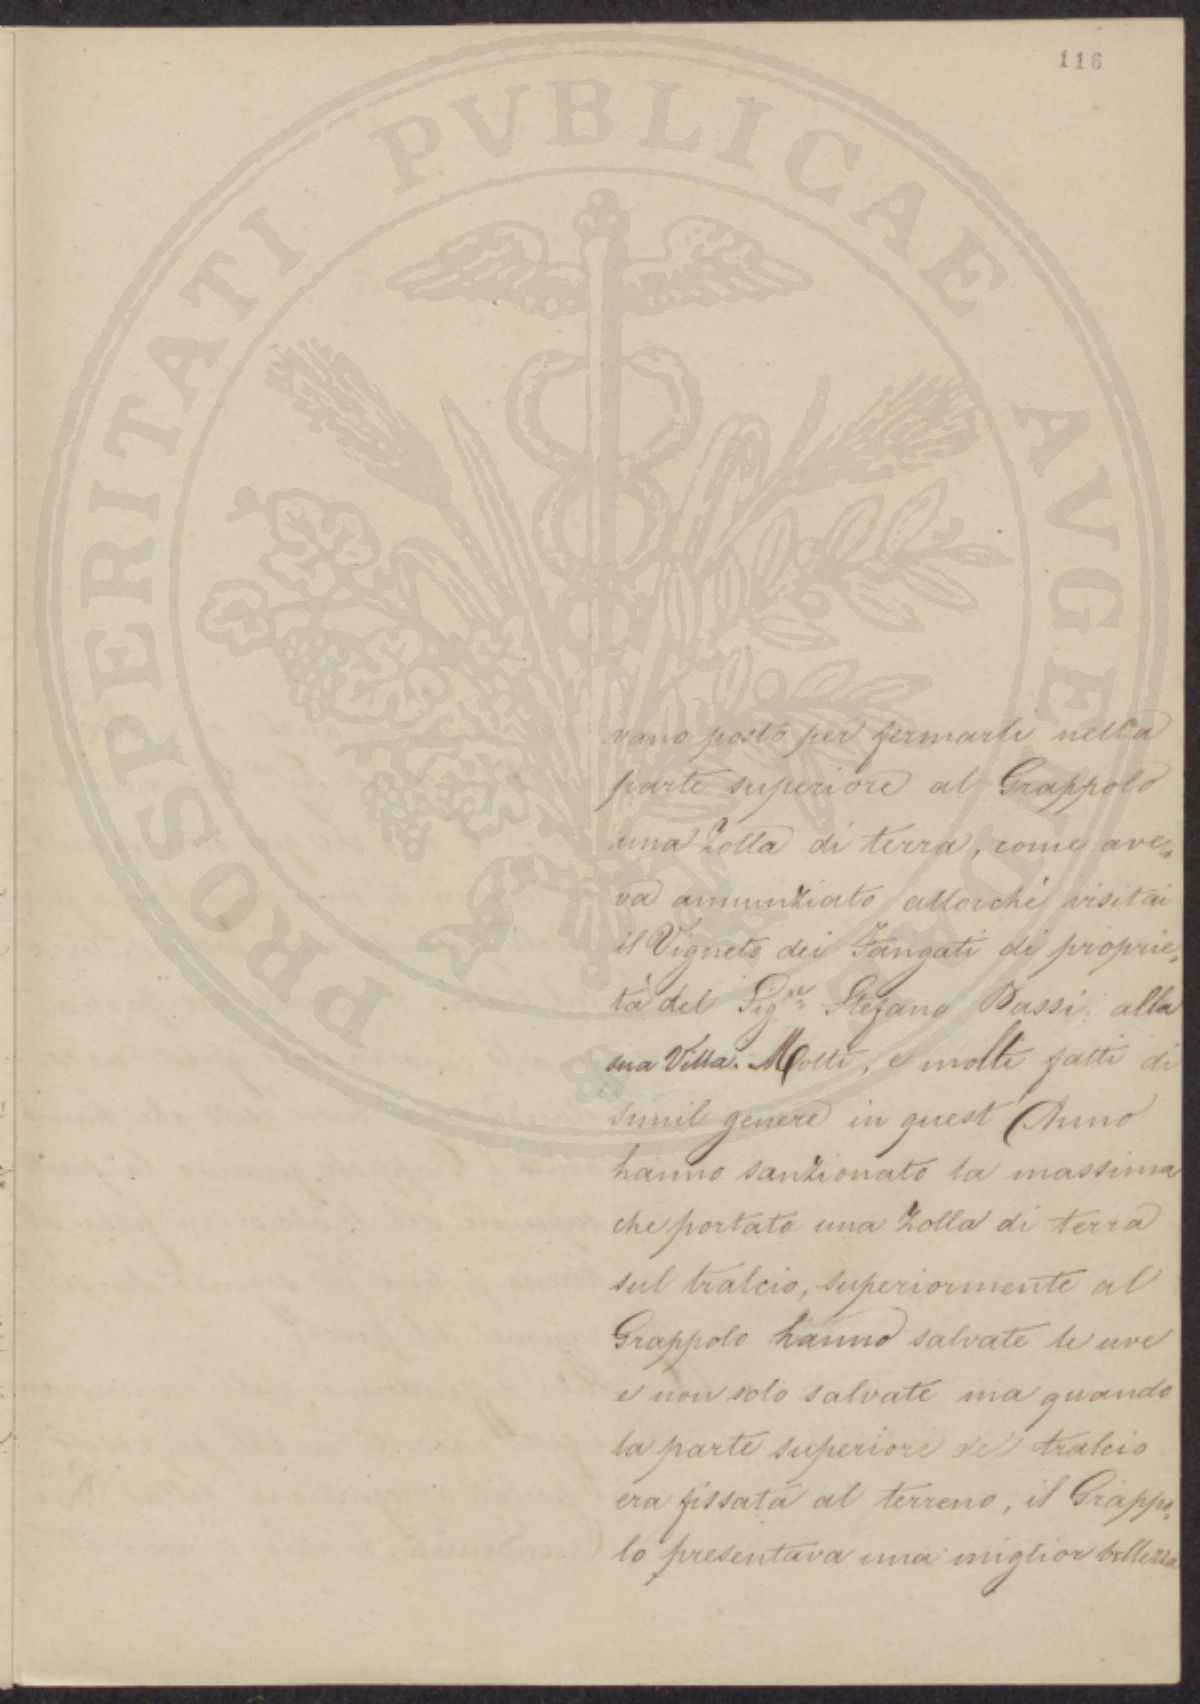 116
PROSPERITATI PVBLICAE AVGENDAE
vano posto per fermarli nella
parte superiore al Grappolo
una Zolla di terra, come ave=
va annunziato allorchè visitai
il Vigneto dei Fangati di proprie=
tà del Sig.re Stefano Bassi alla
sua Villa. Molti, e molti fatti di
simil genere in quest Anno
hanno sanzionato la massima
che portata una Zolla di terra
sul tralcio, superiormente al
Grappolo hanno salvate le uve
e non solo salvate ma quando
la parte superiore del tralcio
era fissata al terreno, il Grappo=
lo presentava una miglior bellezza